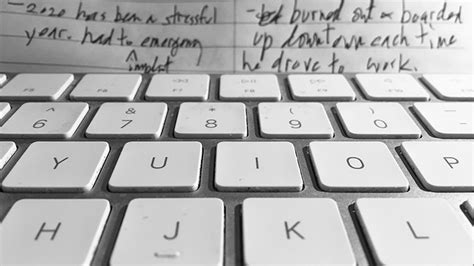 - 2020 has been a stressful
year. had to
implant
burned out & boarded
up downtown each time
he drove to work.
^ & * ( )
6 7 8 9 0
Y U I O P
H J K L